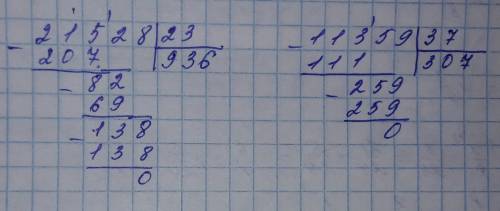 21528 23
- 207 936
- 82
69
- 138
138
0
11359 37
- 111 307
- 259
259
0